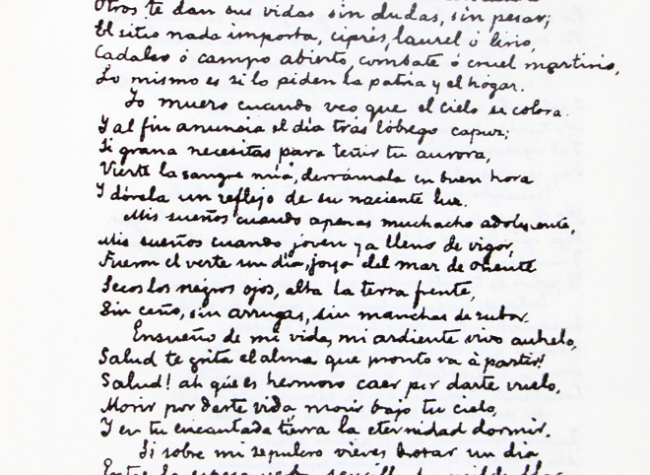 Otros te dan sus vidas, sin dudas, sin pesar;
El sitio nada importa, ciprés, laurel ó lirio,
Cadalso ó campo abierto, combate ó cruel martirio,
Lo mismo es si lo piden la patria y el hogar.
Yo muero cuando veo que el cielo se colora
Y al fin anuncia el día tras lóbrego capuz;
Si grana necesitas para teñir tu aurora,
Vierte la sangre mía, derrámala en buen hora
Y dórela un reflejo de su naciente luz.
Mis sueños cuando apenas muchacho adolescente,
Mis sueños cuando joven ya lleno de vigor,
Fueron el verte un día, joya del mar de oriente
Secos los negros ojos, alta la tersa frente,
Sin ceño, sin arrugas, sin manchas de rubor.
Ensueño de mi vida, mi ardiente vivo anhelo,
Salud te grita el alma que pronto va á partir!
Salud! ah que es hermoso caer por darte vuelo,
Morir por darte vida, morir bajo tu cielo,
Y en tu encantada tierra la eternidad dormir.
Si sobre mi sepulcro vieres brotar un dia,
Entre la espesa yerba sencilla